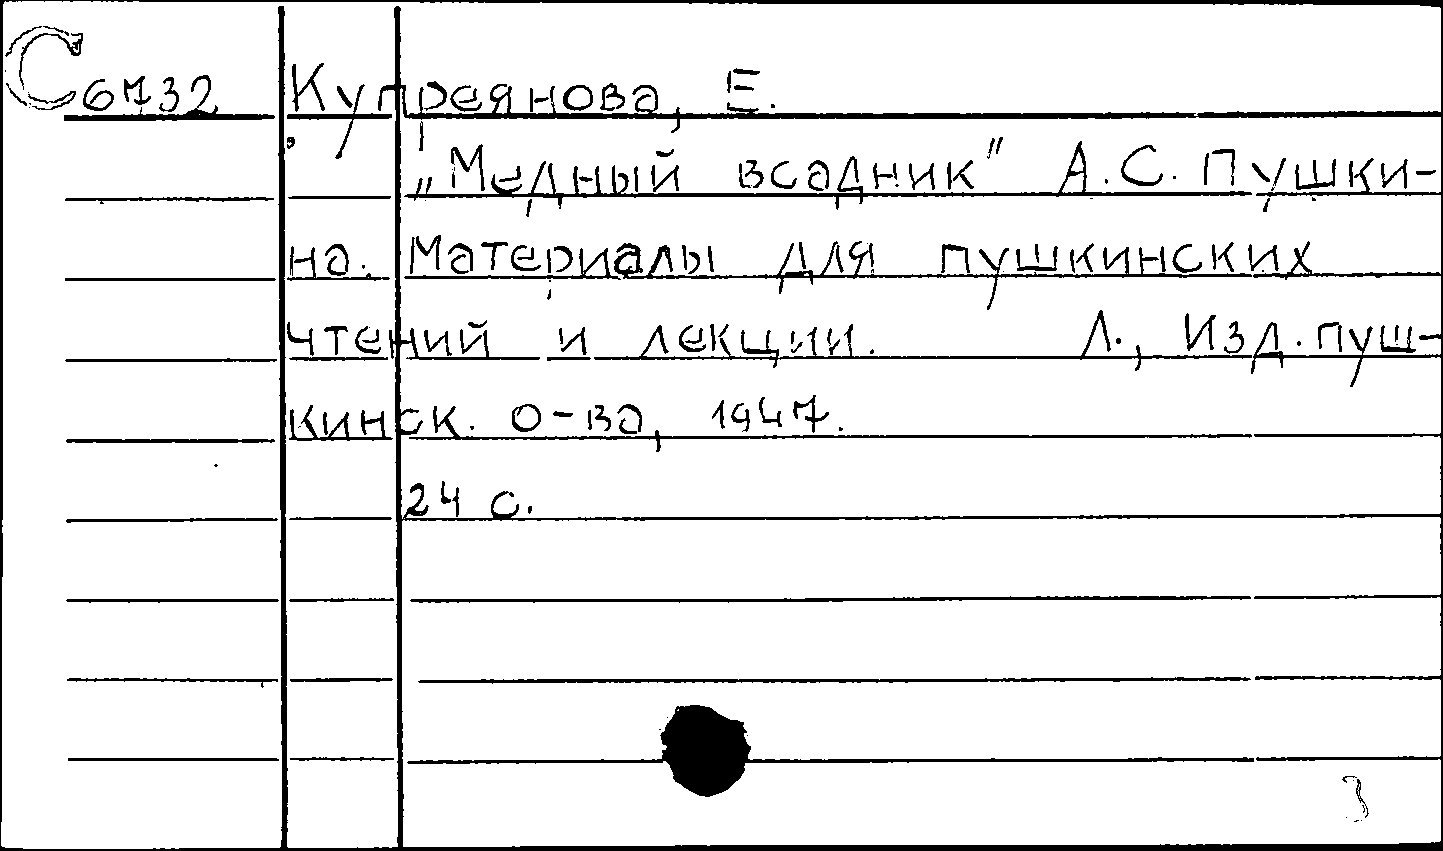 С6732 Купреянова, Е.
„Медный всадник" А.С. Пушки-
на. Материалы для пушкинских
чтений и лекции. Л., Изд. пуш-
кинск. о-ва, 1947.
24 с.
3